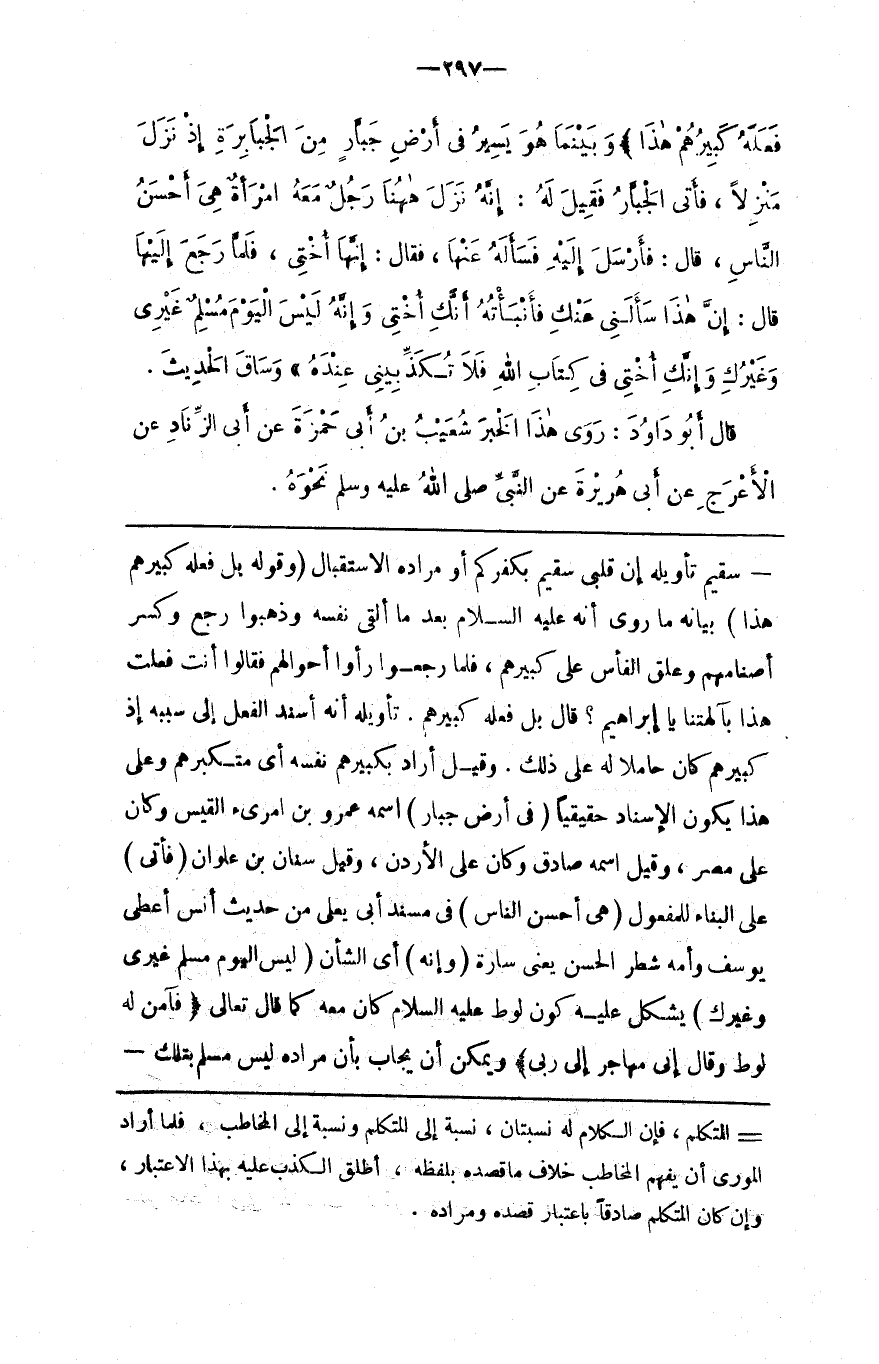 —٢٩٧—
فَعَلَهُ كَبِيرُهُمْ هٰذَا ﴾ وَبَيْنَمَا هُوَ يَسِيرُ فى أَرْضِ جَبَّارٍ مِنَ الْجَبَابِرَةِ إِذْ نَزَلَ
مَنْزِلاً ، فأَتى الْجَبَّارُ فَقِيلَ لَهُ : إِنَّهُ نَزَلَ هٰهُنَا رَجُلٌ مَعَهُ امْرَأَةٌ هِىَ أَحْسَنُ
النَّاسِ ، قال : فأَرْسَلَ إِلَيْهِ فَسَأَلَهُ عَنْهَا ، فقال : إِنَّهَا أُخْتِى ، فَلمَّا رَجَعَ إِلَيْهَا
قال : إِنَّ هٰذَا سَأَلَنِى عَنْكِ فأَنْبَأْتُهُ أَنَّكِ أُخْتِى وَإِنَّهُ لَيْسَ الْيَوْمَ مُسْلِمٌ غَيْرِى
وَغَيْرُكِ وَإِنَّكِ أُخْتِى فى كِتَابِ اللهِ فَلاَ تُكَذِّبِينِى عِنْدَهُ » وَسَاقَ الْحَدِيثَ .
قال أَبُو دَاوُدَ : رَوَى هٰذَا الْخَبَرَ شُعَيْبُ بنُ أَبى حَمْزَةَ عن أَبى الزِّنَادِ عن
الْأَعْرَجِ عن أَبى هُرَيْرَةَ عن النَّبىِّ صلى اللهُ عليه وسلم نَحْوَهُ .
— سقيم تأويله إن قلبى سقيم بكفركم أو مراده الاستقبال (وقوله بل فعله كبيرهم
هذا ) بيانه ما روى أنه عليه السلام بعد ما ألقى نفسه وذهبوا رجع وكسر
أصنامهم وعلق الفأس على كبيرهم ، فلما رجعوا رأوا أحوالهم فقالوا أنت فعلت
هذا بآلهتنا يا إبراهيم ؟ قال بل فعله كبيرهم . تأويله أنه أسند الفعل إلى سببه إذ
كبيرهم كان حاملا له على ذلك . وقيل أراد بكبيرهم نفسه أى متكبرهم وعلى
هذا يكون الإسناد حقيقياً ( فى أرض جبار ) اسمه عمرو بن امرىء القيس وكان
على مصر ، وقيل اسمه صادق وكان على الأردن ، وقيل سنان بن علوان ( فأتى )
على البناء للمفعول ( هى أحسن الناس ) فى مسند أبى يعلى من حديث أنس أعطى
يوسف وأمه شطر الحسن يعنى سارة ( وإنه ) أى الشأن ( ليس اليوم مسلم غيرى
وغيرك ) يشكل عليه كون لوط عليه السلام كان معه كما قال تعالى ﴿ فآمن له
لوط وقال إنى مهاجر إلى ربى﴾ ويمكن أن يجاب بأن مراده ليس مسلم بتلك —
= المتكلم ، فإن الكلام له نسبتان ، نسبة إلى المتكلم ونسبة إلى المخاطب ، فلما أراد
المورى أن يفهم المخاطب خلاف ما قصده بلفظه ، أظلق الكذب عليه بهذا الاعتبار ،
وإن كان المتكلم صادقاً باعتبار قصده ومراده .